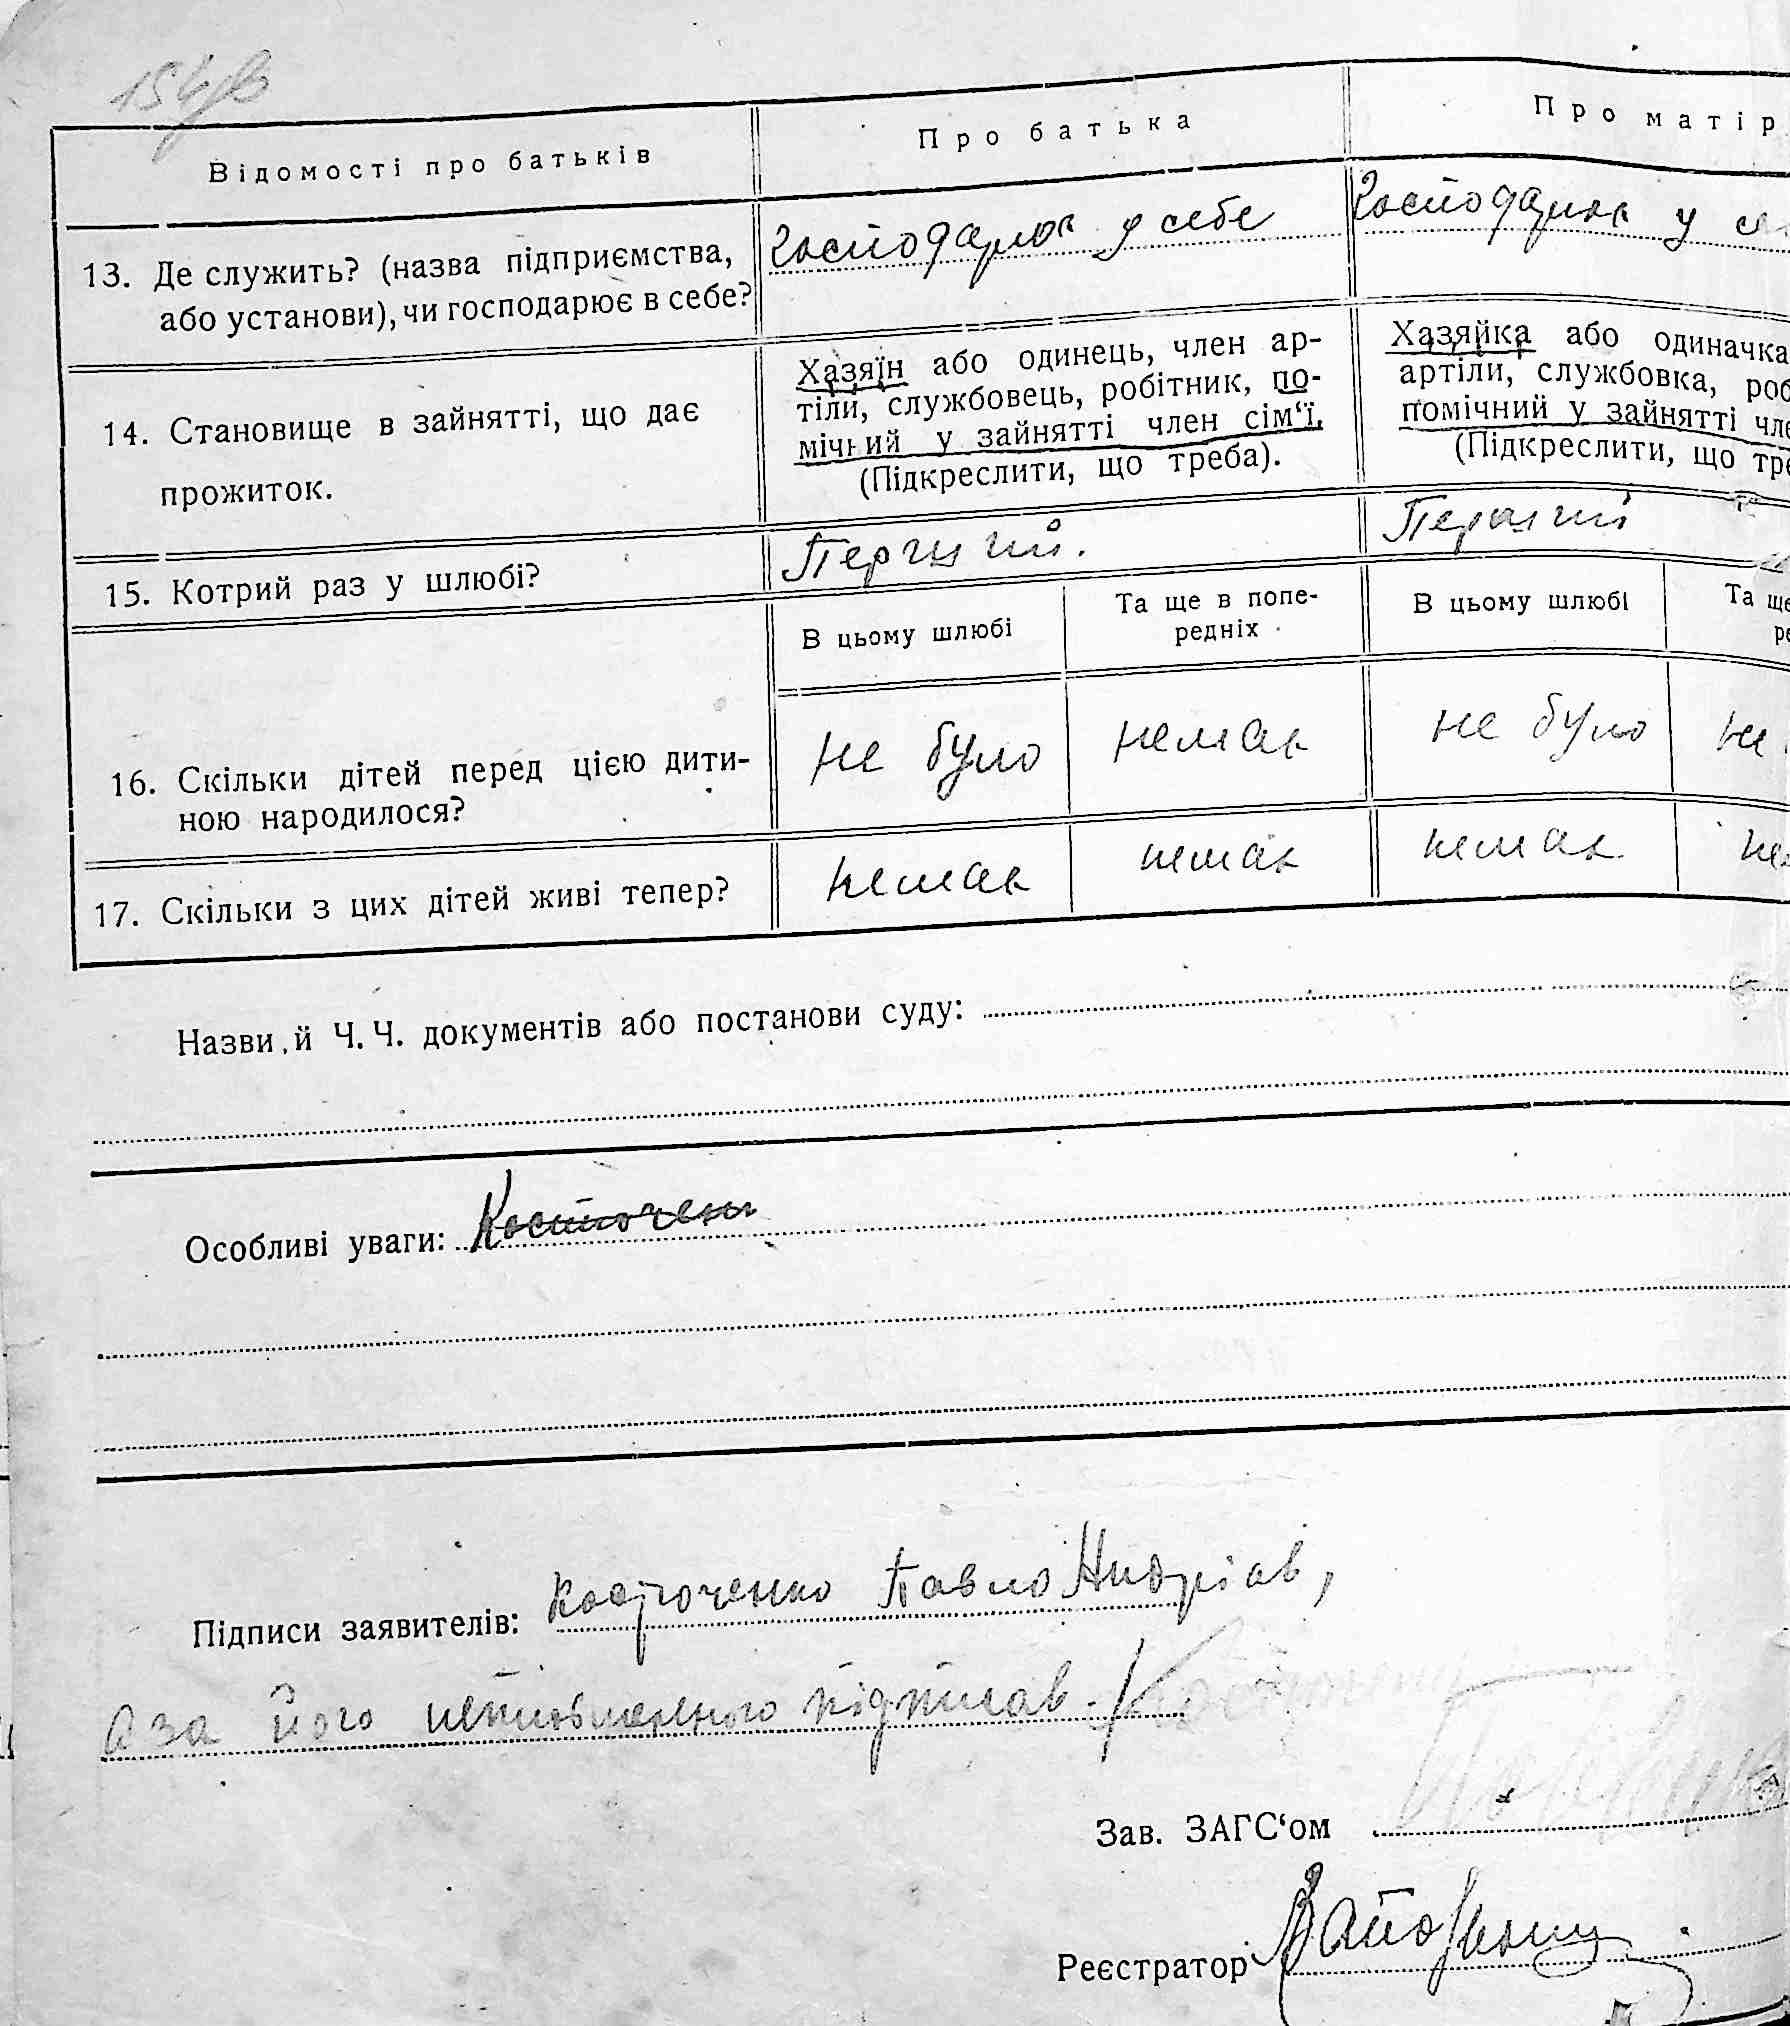 154зв
Відомості про батьків
Про батька
Про матір
13. Де служить? (назва підприємства,
або установи), чи господарює в себе?
господарює у себе
господарює у
14. Становище в зайнятті, що дає
прожиток.
Хазяїн або одинець, член ар-
тіли, службовець, робітник, по-
мічний у зайнятті член сім‘ї.
(Підкреслити, що треба).
Хазяйка або одиначка
артіли, службовка, роб
помічний у зайнятті чле
(Підкреслити, що тре
15. Котрий раз у шлюбі?
Перший.
Перший
В цьому шлюбі
Та ще в попе-
редніх
В цьому шлюбі
Та ще
ре
16. Скільки дітей перед цією дити-
ною народилося?
не було
немає
не було
не
17. Скільки з цих дітей живі тепер?
немає
немає
немає
не
Назви й Ч. Ч. документів або постанови суду:
Особливі уваги:
Підписи заявителів: Костюченко Павло Андріев,
а за його неписьменного підписав
Зав. ЗАГС‘ом
Реєстратор